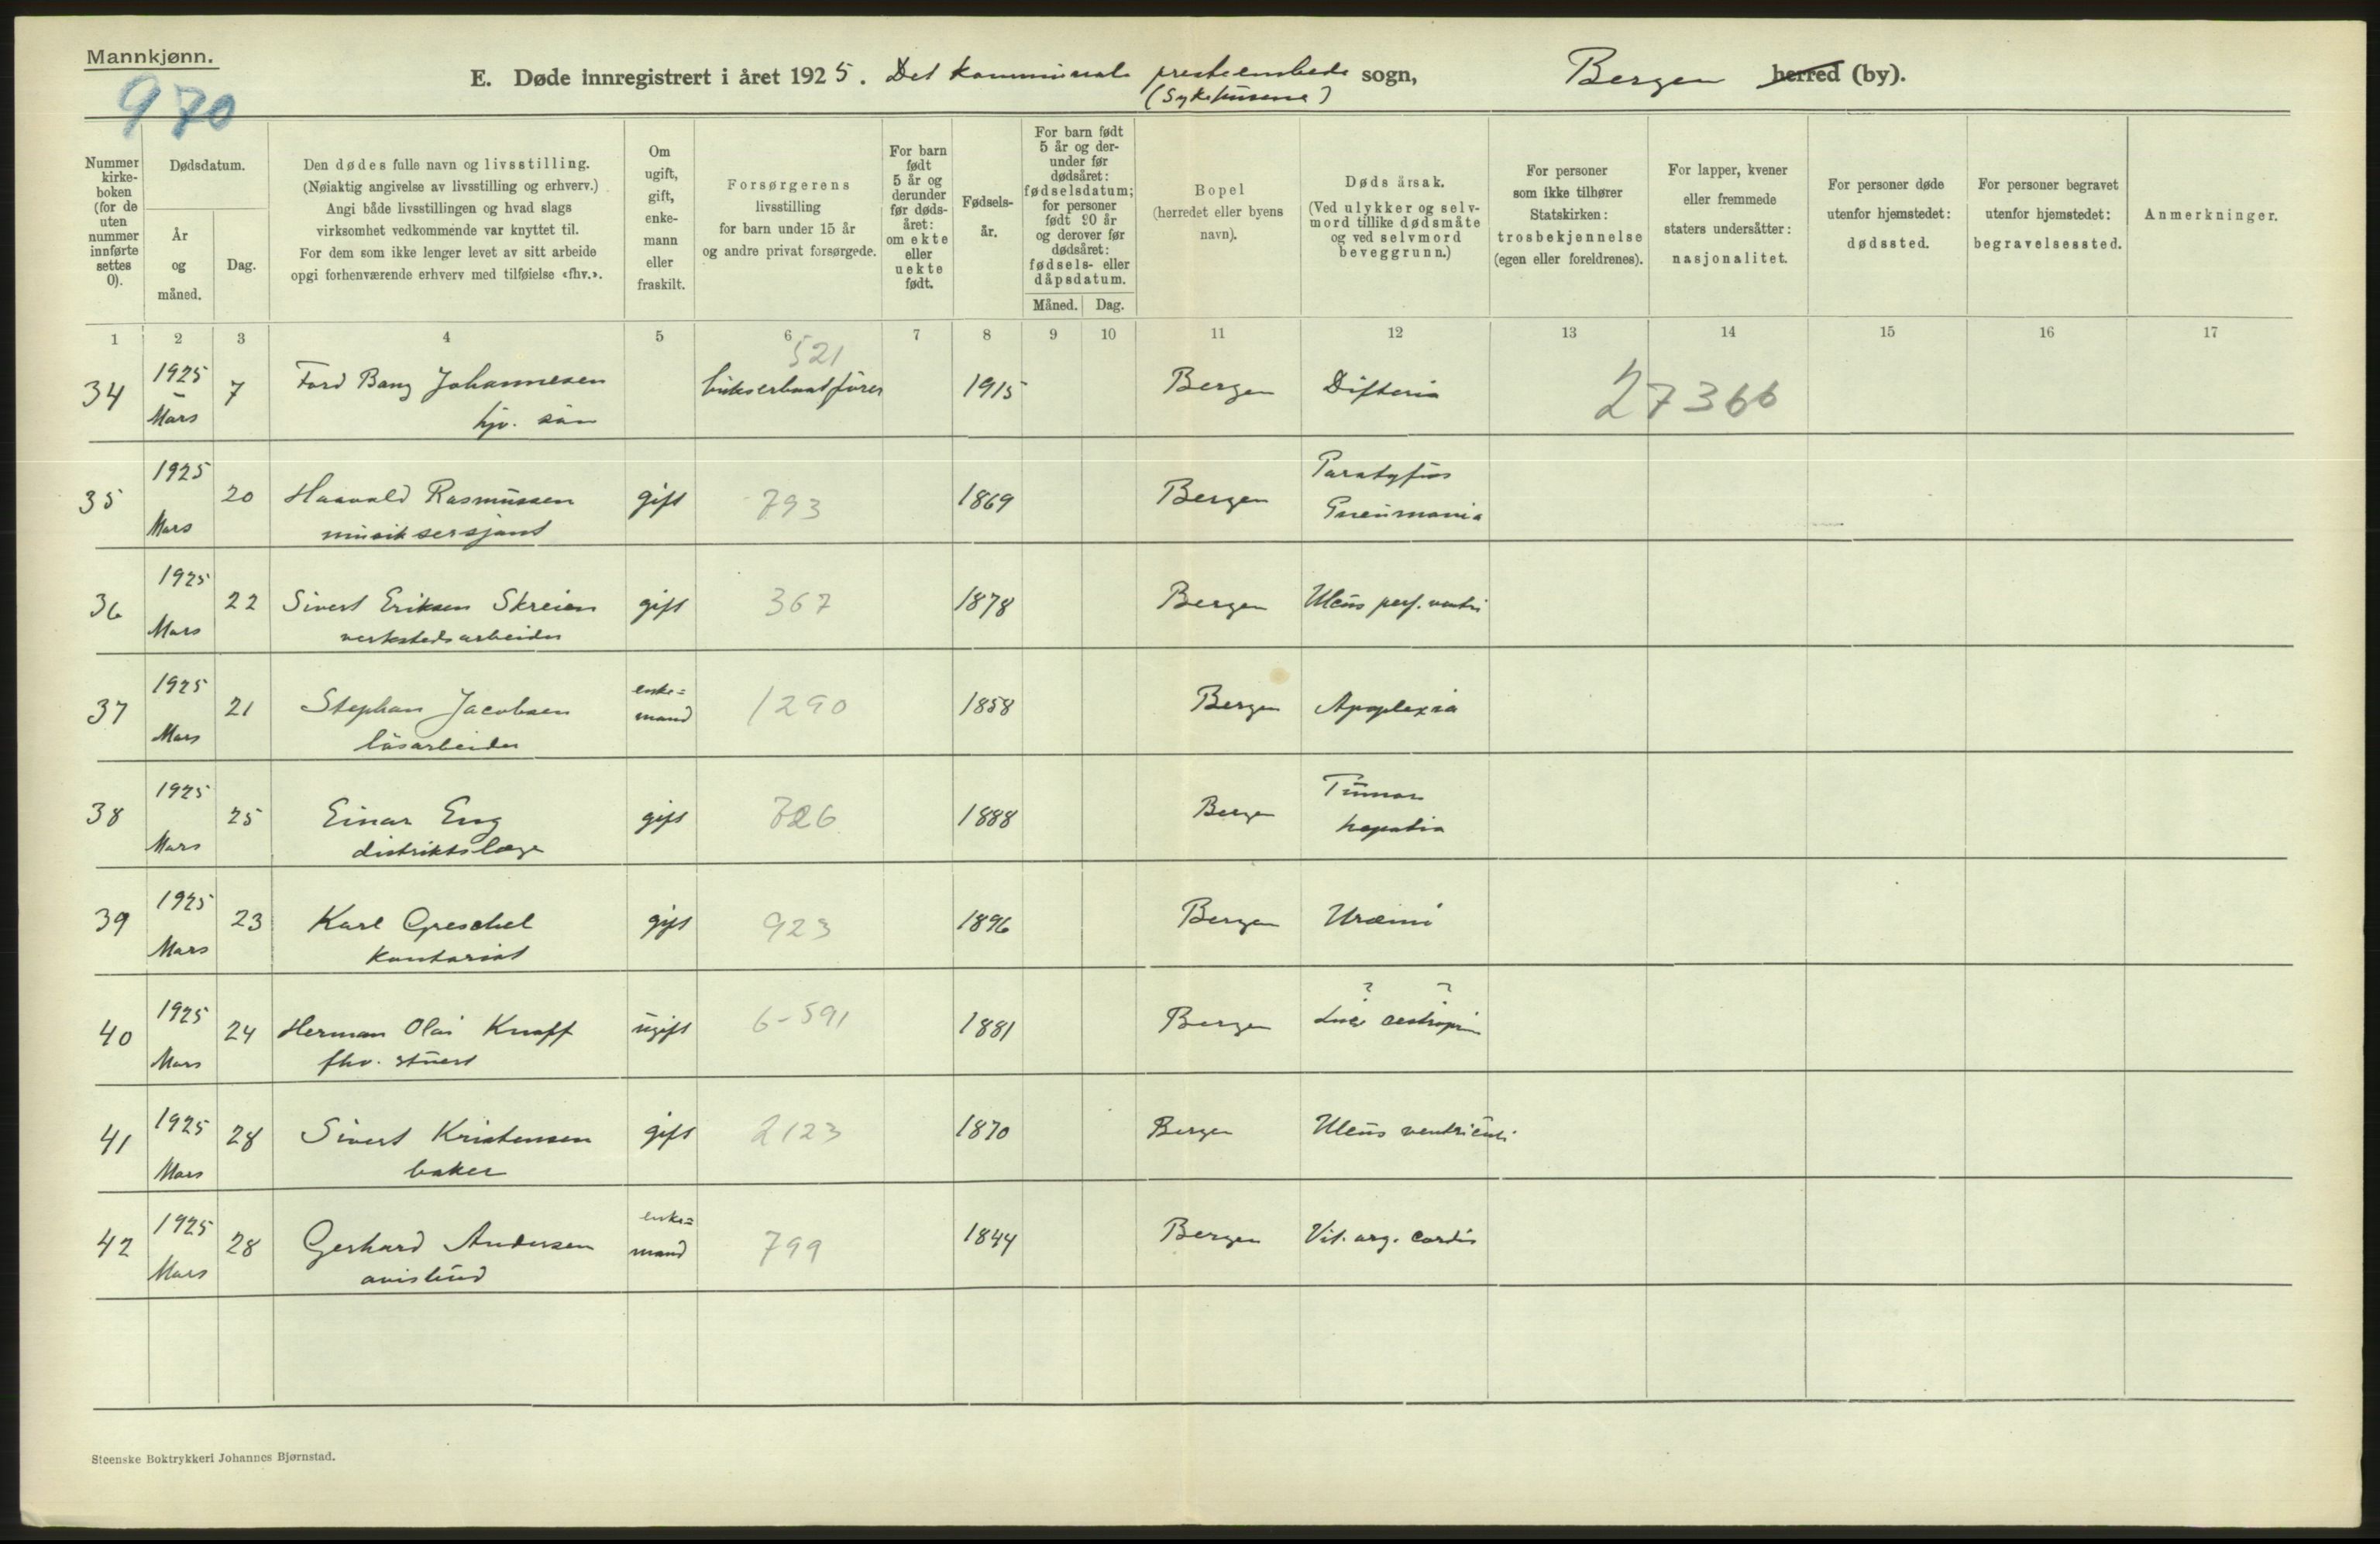 Mannkjønn.
970
E. Døde innregistrert i året 1925. Det kommunale presteembede sogn, Bergen herred (by).
(Sykehusene)
Nummer kirke-boken (for de uten nummer innførte settes 0).
Dødsdatum.
År og måned.
Dag.
Den dødes fulle navn og livsstilling.
(Nøiaktig angivelse av livsstilling og erhverv.)
Angi både livsstillingen og hvad slags
virksomhet vedkommende var knyttet til.
For dem som ikke lenger levet av sitt arbeide
opgi forhenværende erhverv med tilføielse «fhv.».
Om ugift, gift, enke-mann eller fraskilt.
Forsørgerens
livsstilling
for barn under 15 år
og andre privat forsørgede.
For barn født 5 år og derunder før døds-året: om ekte eller uekte født.
Fødsels-år.
For barn født 5 år og der-under før dødsåret: fødselsdatum; for personer født 20 år og derover før dødsåret: fødsels- eller dåpsdatum.
Måned. Dag.
Bopel
(herredet eller byens navn).
Døds årsak.
(Ved ulykker og selv-mord tillike dødsmåte og ved selvmord beveggrunn.)
For personer
som ikke tilhører
Statskirken:
trosbekjennelse
(egen eller foreldrenes).
For lapper, kvener
eller fremmede
staters undersåtter:
nasjonalitet.
For personer døde
utenfor hjemstedet:
dødssted.
For personer begravet
utenfor hjemstedet:
begravelsessted.
Anmerkninger.
1 2 3 4 5 6 7 8 9 10 11 12 13 14 15 16 17
521
34 1925 Mars 7 Bang Johannesen 1915 Bergen Difteria 27366
hjv. sön
35 1925 Mars 20 Haavald Rasmussen gift 793 1869 Bergen Paratyfus
musiksersjant Pneumonia
36 1925 Mars 22 Sivert Eriksen Skreien gift 367 1878 Bergen Ulcus perf. ventri
verkstedsarbeider
37 1925 Mars 21 Stephan Jacobsen enke=mand 1290 1858 Bergen Apoplexia
løsarbeider
38 1925 Mars 25 Einar Eng gift 726 1888 Bergen Tumor
distriktslæge hepatis
39 1925 Mars 23 Karl Greschel gift 923 1896 Bergen Uræmi
Kontorist
40 1925 Mars 24 Herman Olai Knaff ugift 6-591 1881 Bergen ? ?
fhv. stuert
41 1925 Mars 28 Sivert Kristensen gift 2123 1870 Bergen Ulcus ventriculi
baker
42 1925 Mars 28 Gerhard Andersen enke=mand 799 1844 Bergen Vit. org. cordis
avisbud
Steenske Boktrykkeri Johannes Bjørnstad.